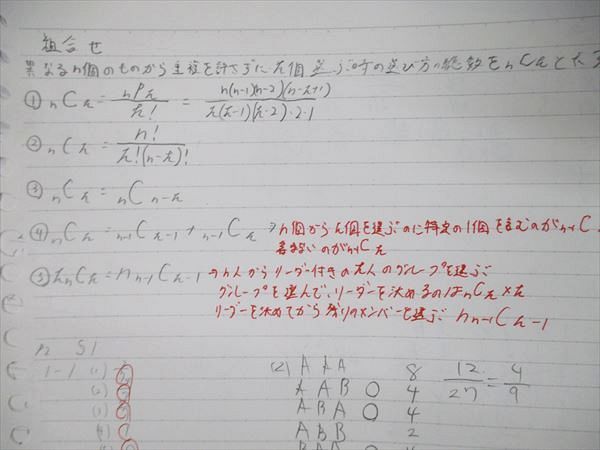 組合せ
異なるn個のものから重複を許さずにr個選ぶ時の選び方の総数をnCrと
① nCr = nPr / r! = n(n-1)(n-2)(n-r+1) / r(r-1)(r-2)・2・1
② nCr = n! / r!(n-r)!
③ nCr = nCn-r
④ nCr = n-1Cr-1 + n-1Cr → n個からr個を選ぶのに特定の1個を含むのがn-1C
含まないのがn-1Cr
⑤ rnCr = n n-1Cr-1 → n人からリーダー付きのr人のグループを選ぶ
グループを選んで、リーダーを決めるのはnCr×r
リーダーを決めてから残りのメンバーを選ぶ n n-1Cr-1
1-1 (1)
(2) AAA 8 12/27 = 4/9
AAB ○ 4
ABA ○ 4
ABB 2